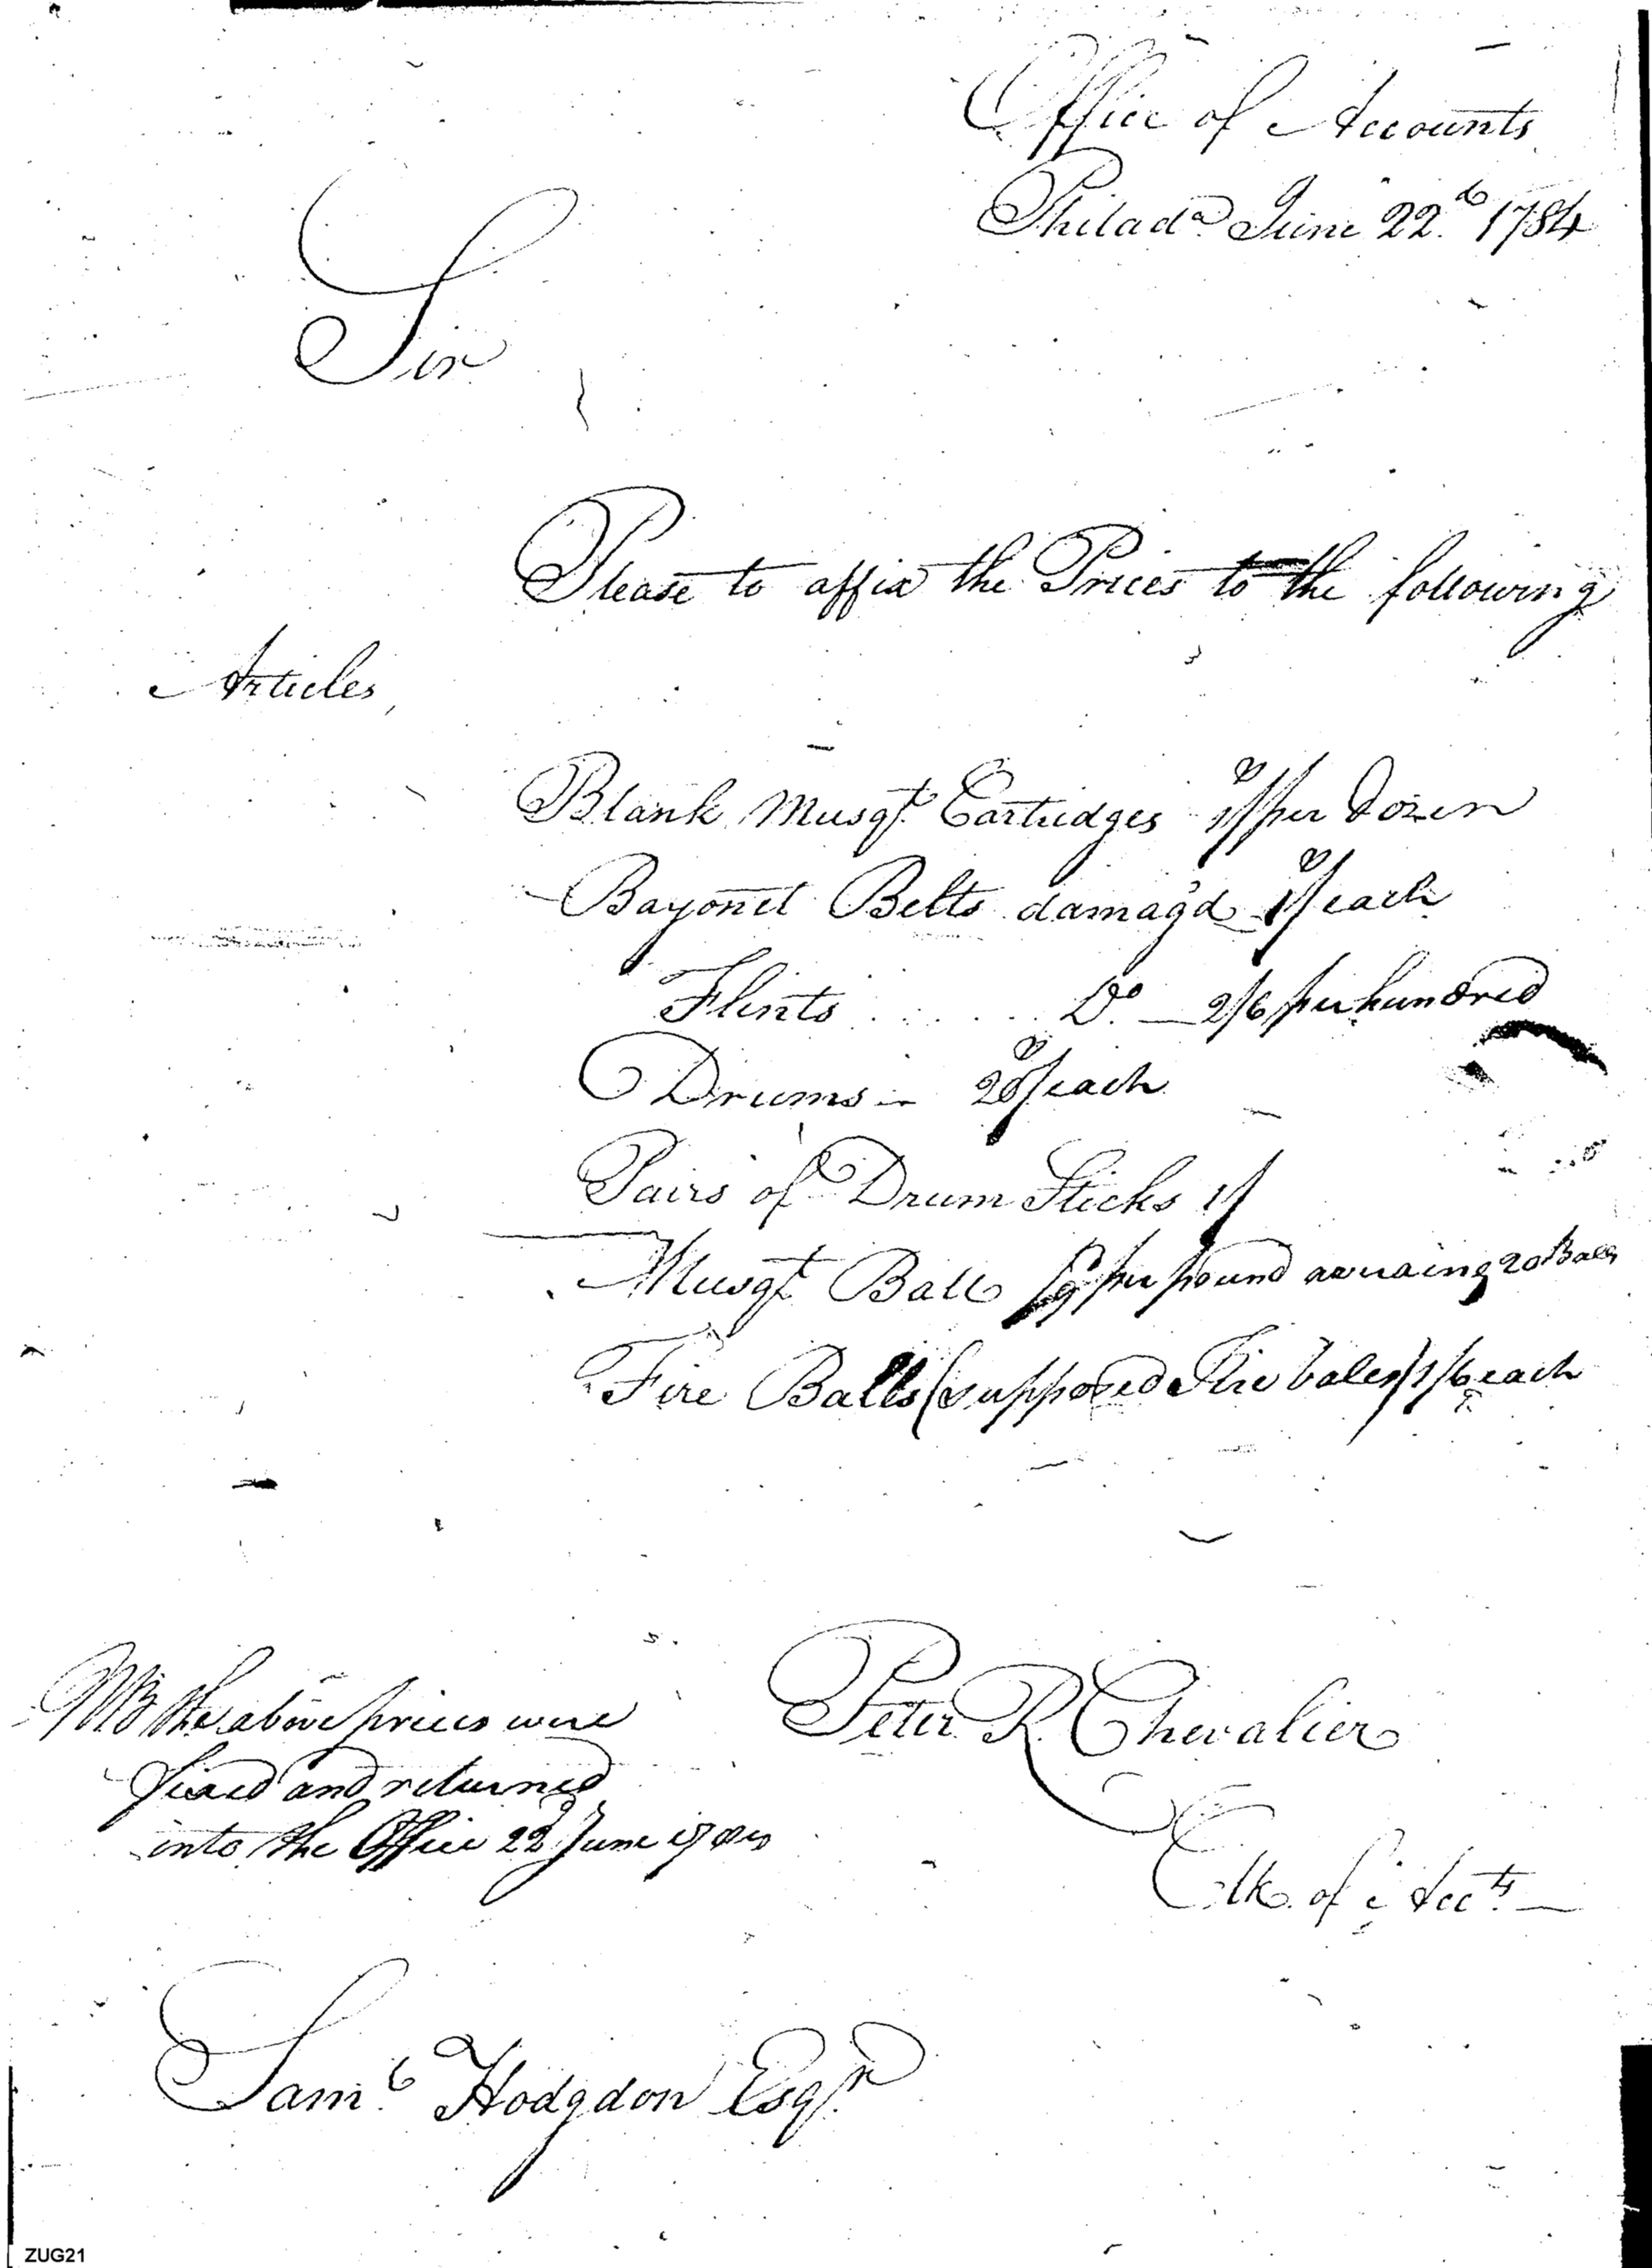 Office of Accounts
Philad.a June 22.d 1784
Sir
Please to affix the Prices to the following
Articles,
Blank Musqt. Cartridges 1/ per dozen
Bayonet Belts damag'd 1/ each
Flints ...... Do. — 2/6 per hundred
Drums — 20/ each
Pairs of Drum Sticks 1/
Musqt. Ball /9 per pound 20 Balls
Fire Balls (supposed Fire bales) 1/6 each
NB the above prices were
fixed and returned
into the Office 22d June
Peter R. Chevalier
Clk. of Accts. —
Saml. Hodgdon Esqr.
ZUG21